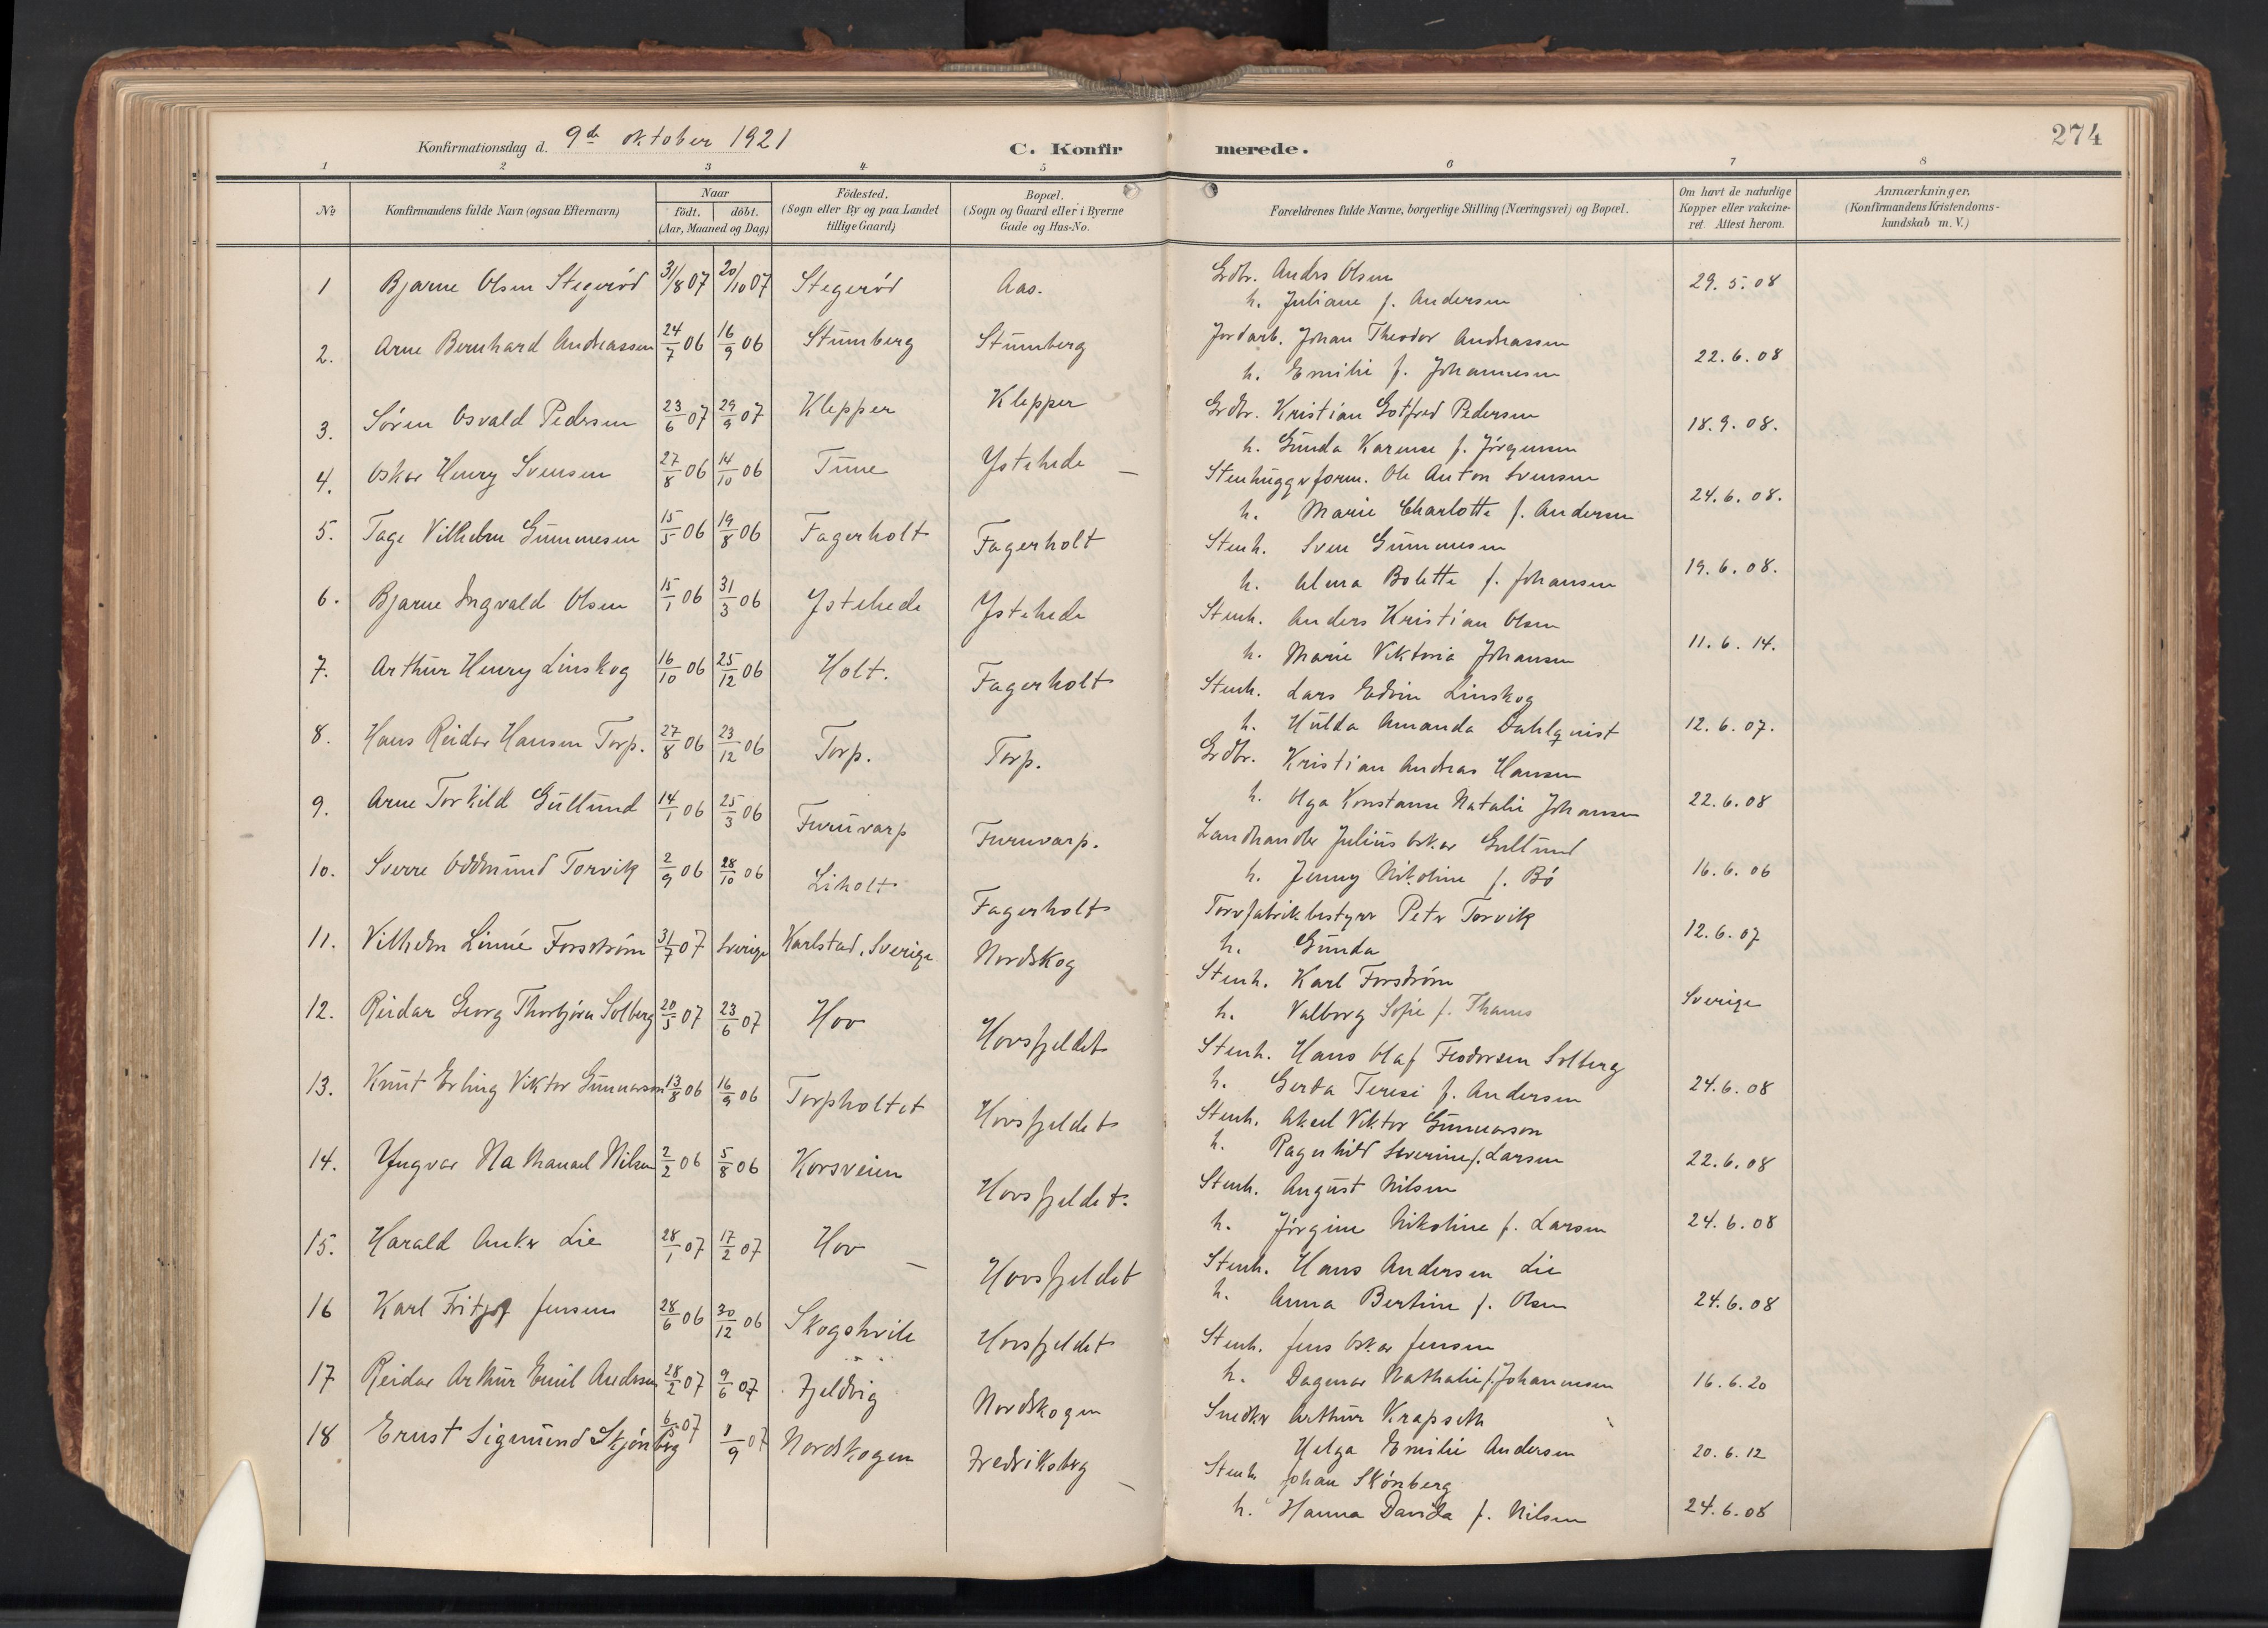 274
Konfirmationsdag d. 9de oktober 1921 C. Konfirmerede.
1 2 3 4 5 6 7 8
№ Konfirmandens fulde Navn (ogsaa Efternavn) Naar födt. döbt. (Aar, Maaned og Dag) Födested. (Sogn eller By og paa Landet tillige Gaard) Bopæl. (Sogn og Gaard eller i Byerne Gade og Hus-No. Forældrenes fulde Navne, borgerlige Stilling (Næringsvei) og Bopæl. Om havt de naturlige Kopper eller vakcineret. Attest herom. Anmærkninger. (Konfirmandens Kristendomskundskab m. V.)
1 Bjarne Olsen Stegerød 31/8 07 20/10 07 Stegerød Aas. Grdbr. Andrs Olsen 29.5.08
h. Juliane f. Andersen
2. Arne Bernhard Andreassen 24/7 06 16/9 06 Stumberg Stumberg Jordarb. Johan Theodor Andreassen 22.6.08
h. Emilie f. Johannesen
3. Søren Osvald Pedersen 23/6 07 29/9 07 Klepper Klepper Grdbr. Kristian Gotfred Pedersen 18.9.08.
h. Gunda Karense f. Jørgensen
4. Oskar Henry Svensen 27/8 06 14/10 06 Tune Ystehede – Stenhuggerform. Ole Anton Svensen 24.6.08.
h. Marie Charlotte f. Andersen
5. Tage Vilhelm Gummesen 15/5 06 19/8 06 Fagerholt Fagerholt Stenh. Sven Gummesen 19.6.08.
h. Alma Bolette f. Johansen
6. Bjarne Ingvald Olsen 15/1 06 31/3 06 Ystehede Ystehede Stenh. Anders Kristian Olsen 11.6.14.
h. Marie Viktoria Johansen
7. Arthur Henry Linskog 16/10 06 25/12 06 Holt. Fagerholt Stenh. Lars Edvin Linskog 12.6.07.
h. Hulda Amanda Dahlqvist
8. Hans Reidar Hansen Torp. 27/8 06 23/12 06 Torp. Torp. Grdbr. Kristian Andreas Hansen 22.6.08
h. Olga Konstanse Natalie Johansen
9. Arne Torkild Gullund 14/1 06 25/3 06 Furuvarp Furuvarp. Landhandler Julius Oskar Gullund 16.6.06
h. Jenny Nikoline f. Bø
10. Sverre Oddmund Torvik 2/9 06 28/10 06 Liholt Fagerholt Torvfabrikbestyrer Peter Torvik 12.6.07
h. Gunda
11. Vilhelm Linné Forsstrøm 31/7 07 Sverige Karlstad, Sverige Nordskog Stenh. Karl Forstrøm Sverige
h. Valborg Sofie f. Thams
12. Reidar Georg Thorbjørn Solberg 20/5 07 23/6 07 Hov Hovsfjeldet Stenh. Hans Olaf Feodorsen Solberg 24.6.08
h. Gerda Terese f. Andersen
13. Knut Erling Viktor Gunnarson 13/8 06 16/9 06 Torpholtet Hovsfjeldet Stenh. Aksel Viktor Gunnarson 22.6.08
h. Ragnhild Severine f. Larsen
14. Yngvar Nathanael Nilsen 2/2 06 5/8 06 Korsveien Hovsfjeldet. Stenh. August Nilsen 24.6.08
h. Jørgine Nikoline f. Larsen
15. Harald Anker Lie 28/1 07 17/2 07 Hov – Hovsfjeldet Stenh. Hans Andersen Lie 24.6.08
h. Anna Bertine f. Olsen
16 Karl Fritjof Jensen 28/6 06 30/12 06 Skogshvile Hovsfjeldet Stenh. Jens Oskar Jensen 16.6.20
h. Dagmar Nathalie f. Johannesen
17 Reidar Arthur Emil Andersen 28/2 07 9/6 07 Fjeldvig Nordskogen Snedker Arthur Krapseth 20.6.12
Helga Emilie Andersen
18 Ernst Sigmund Skjønberg 6/5 07 1/9 07 Nordskogen Fredriksberg – Stenh Johan Skønberg 24.6.08
h. Hanna Davida f. Nilsen